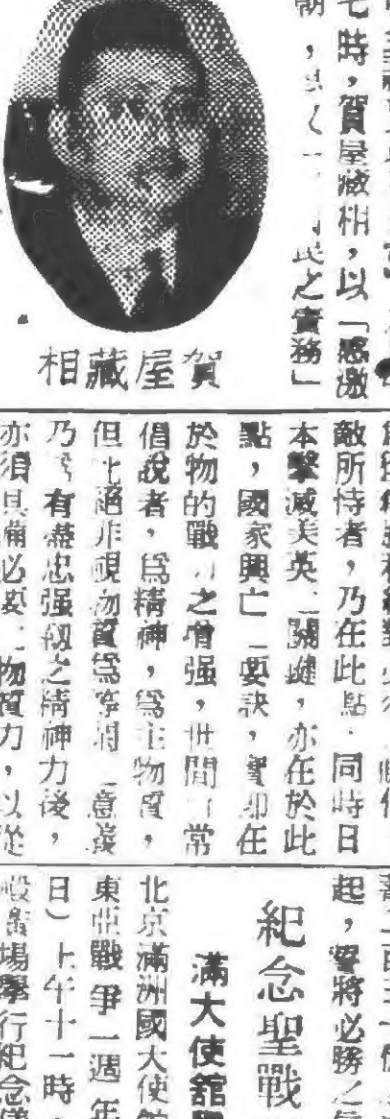 七時，賀屋藏相，以「感激
朝，民之責務」
賀屋藏相
敵所恃者，乃在此點．同時日
本擊滅美英之關鍵，亦在於此
點，國家興亡之要訣，實即在
於物的戰之增强，世間常
倡說者，爲精神，爲主物質，
但此絕非視物質爲等閒意義
乃爲有盡忠强韌之精神力後，
亦須具備必要之物質力，以從
起，誓將必勝之
紀念聖戰
滿大使舘
北京滿洲國大使舘
東亞戰爭一週年
日）上午十一時，
場舉行紀念儀